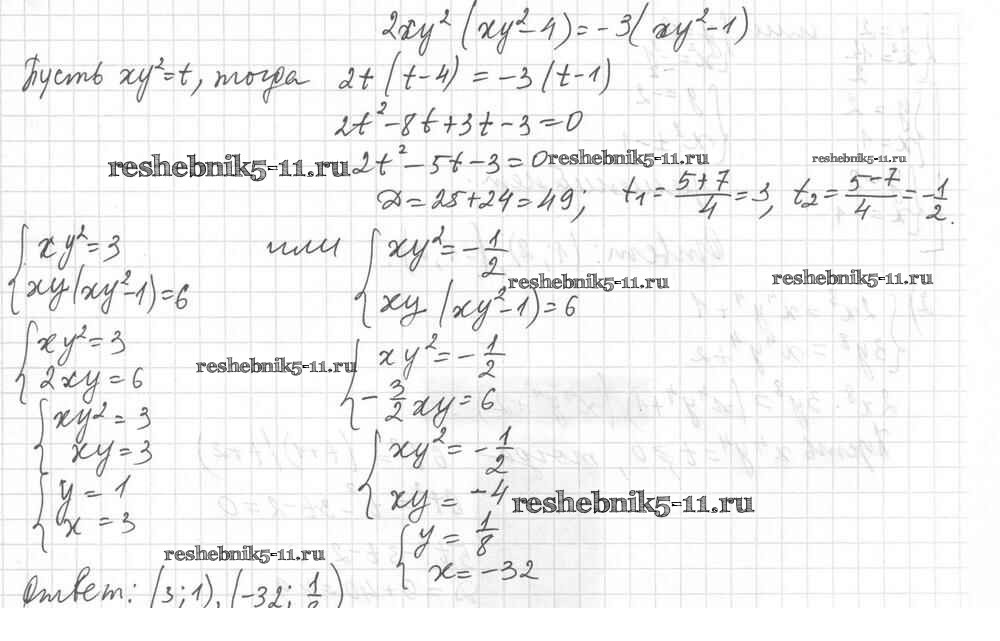 2xy²(xy²-4)=-3(xy²-1)
Пусть xy²=t, тогда 2t(t-4)=-3(t-1)
2t²-8t+3t-3=0
reshebnik5-11.ru 2t²-5t-3=0 reshebnik5-11.ru reshebnik5-11.ru
D=25+24=49; t₁=(5+7)/4=3, t₂=(5-7)/4=-1/2.
{xy²=3 или {xy²=-1/2
xy(xy²-1)=6 xy(xy²-1)=6
reshebnik5-11.ru reshebnik5-11.ru
{xy²=3 {xy²=-1/2
2xy=6 -3/2xy=6
reshebnik5-11.ru
{xy²=3 {xy²=-1/2
xy=3 xy=-4
reshebnik5-11.ru
{y=1 {y=1/8
x=3 x=-32
reshebnik5-11.ru
Ответ: (3;1), (-32; 1/8)